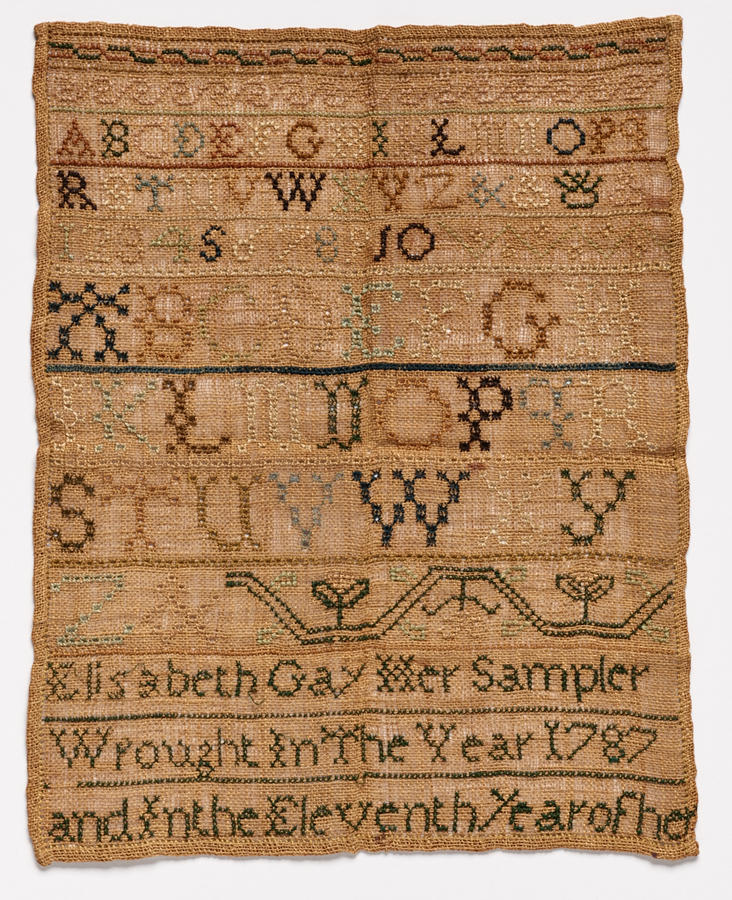 A B C D E F G H I K L M N O P q
R S T U V W X Y Z & &
1 2 3 4 5 6 7 8 9 10
A B C D E F G H
I K L M N O P q R
S T U V W X Y
Z
Elisabeth Gay Her Sampler
Wrought In The Year 1787
and In the Eleventh Year of her